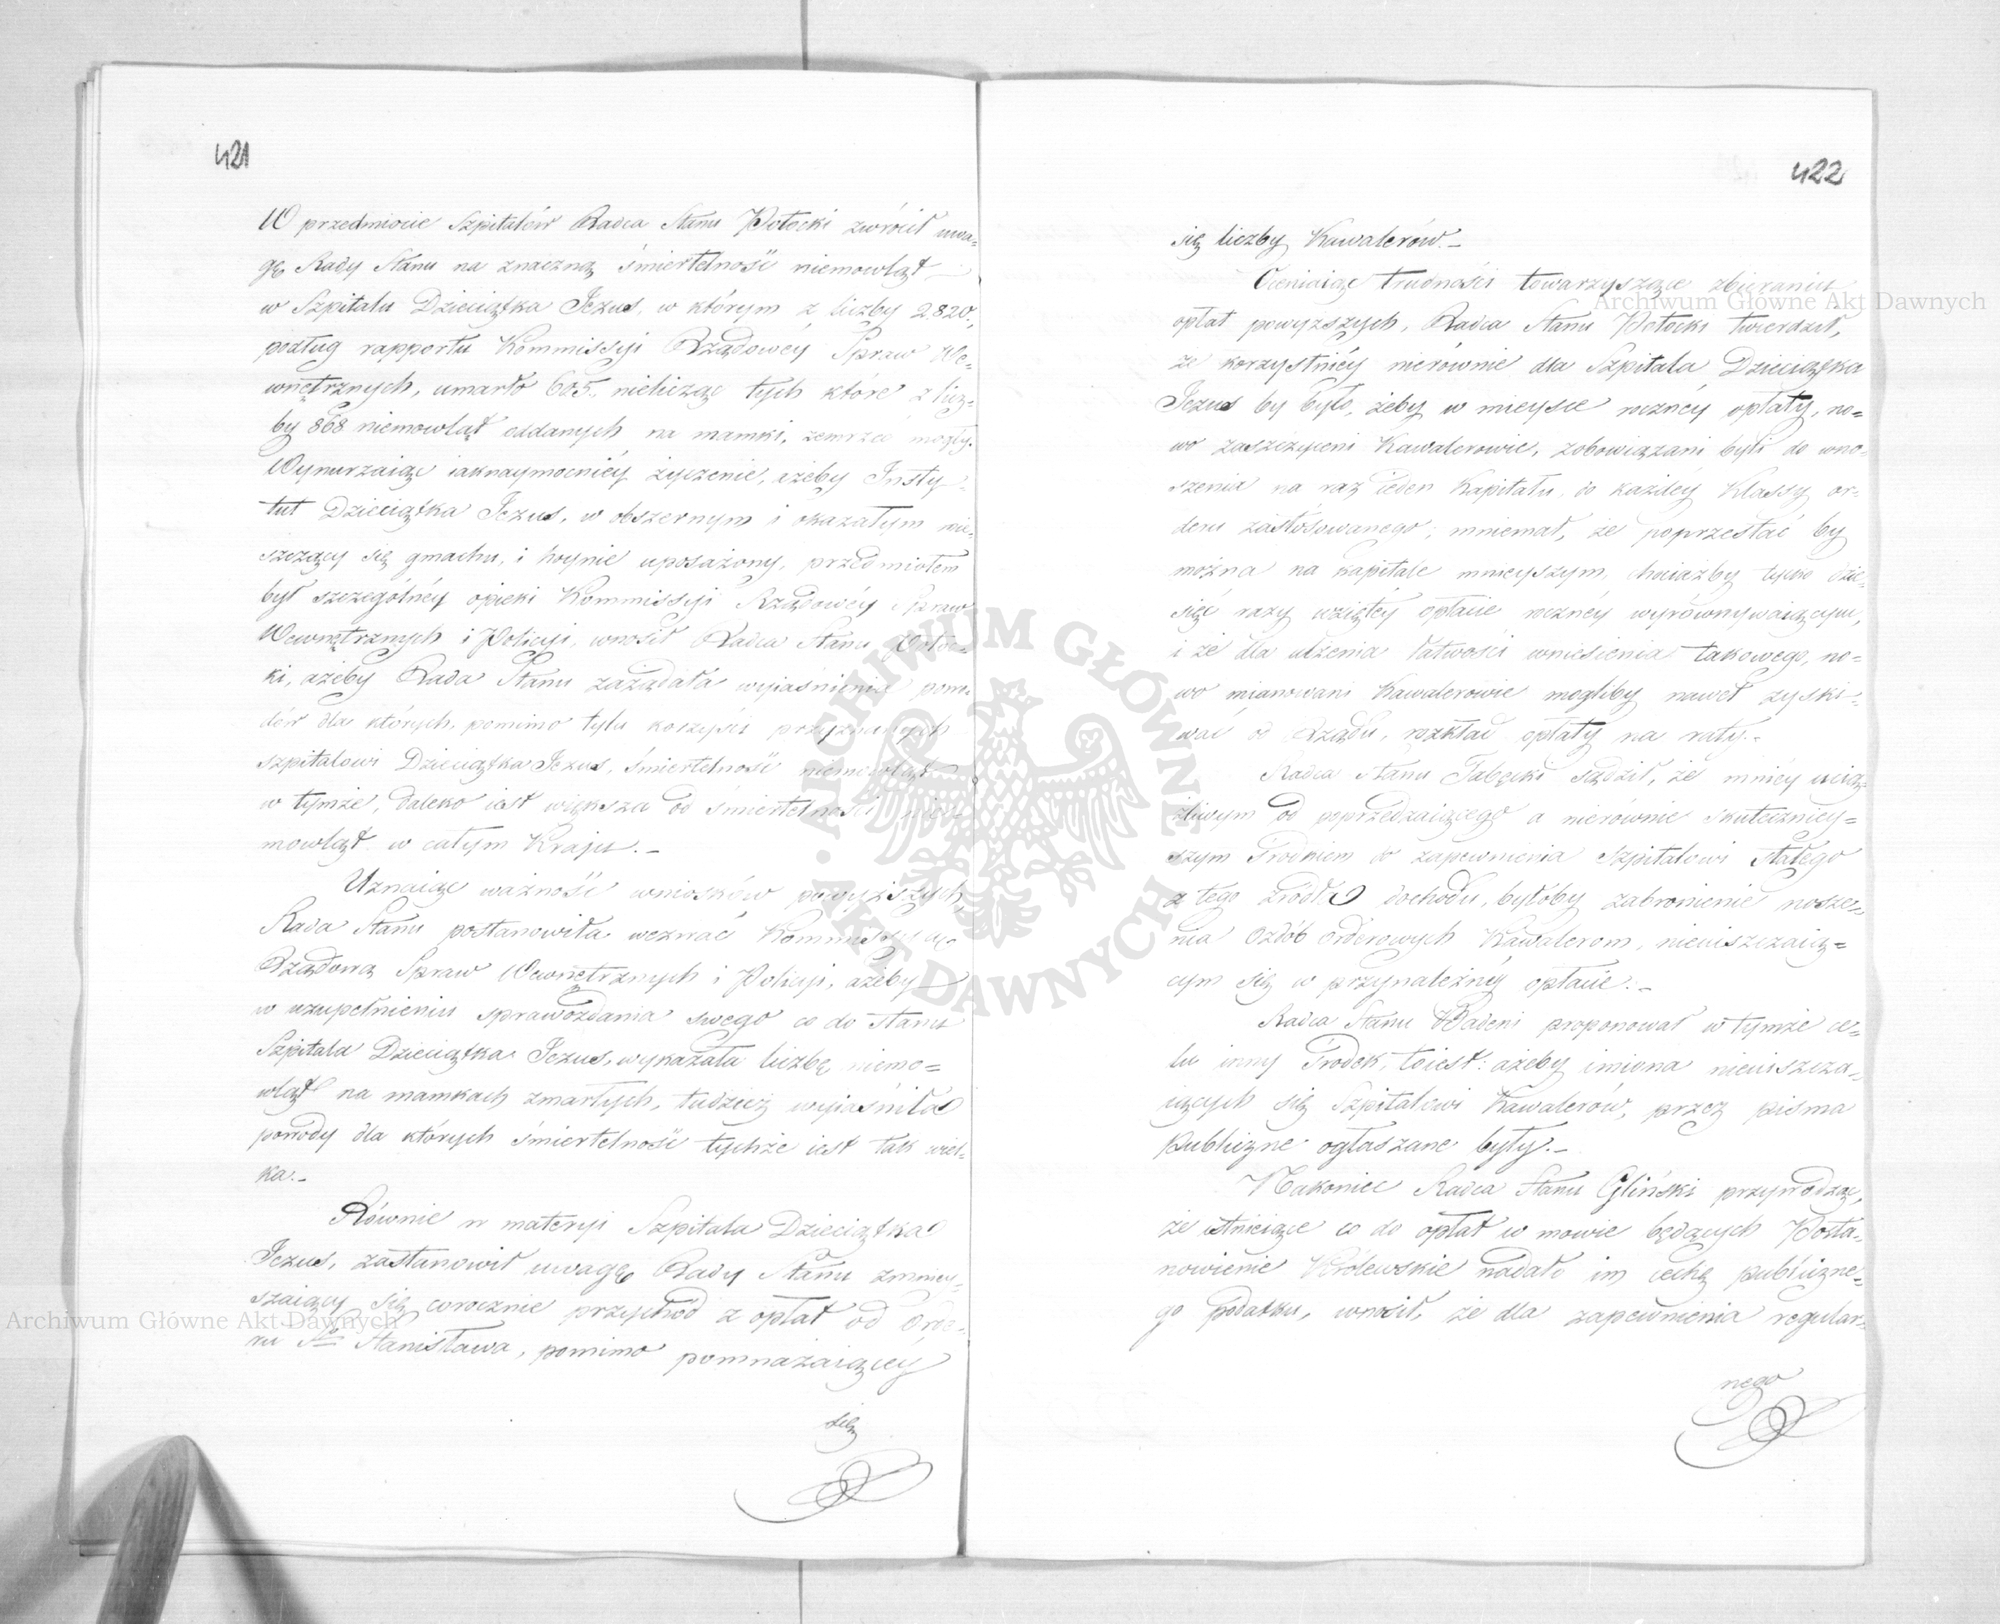 421
W przedmiocie Szpitalów Radca Stanu Potocki zwrócił uwa-
gę Rady Stanu na znaczną śmiertelność niemowląt
w Szpitalu Dzieciątka Jezus, w którym z liczby 2,820.,
podług rapportu Kommissyi Rządowéy Spraw We-
wnętrznych, umarło 605. nielicząc tych które z licz-
by 868 niemowląt oddanych na mamki, zemrzeć mogły.
Wynurzaiąc iaknaymocniéy życzenie, ażeby Insty-
tut Dzieciątka Jezus, w obszernym i okazałym mie-
szczący się gmachu, i hoynie uposażony, przedmiotem
był szczególnéy opieki Kommissyi Rządowéy Spraw
Wewnętrznych i Policyi, wnosił Radca Stanu Potoc-
ki, ażeby Rada Stanu zażądała wyiaśnienia powo-
dów dla których, pomimo tylu korzyści przyznanych
szpitalowi Dzieciątka Jezus, śmiertelność niemowląt
w tymże, daleko iest większa od śmiertelności niem-
mowląt w całym Kraju.-
Uznaiąc ważność wniosków powyższych,
Rada Stanu postanowiła wezwać Kommissyą
Rządową Spraw Wewnętrznych i Policyi, ażeby
w uzupełnieniu sprawozdania swego co do stanu
Szpitala Dzieciątka Jezus, wykazała liczbę niemo-
wląt na mamkach zmarłych, tudzież wyiaśniła
powody dla których śmiertelność tychże iest tak wiel-
ka.-
Równie w materyi Szpitala Dzieciątka
Jezus, zastanowił uwagę Rady Stanu zmniey-
szaiący się corocznie przychód z opłat od Orde-
ru Sgo Stanisława, pomimo pomnażaiącéy
się
422
się liczby Kawalerów.-
Oceniaiąc trudności towarzyszące zbieraniu
opłat powyższych, Radca Stanu Potocki twierdził,
że korzystniéy nierównie dla Szpitala Dzieciątka
Jezus by było, żeby w mieysce rocznéy opłaty, no-
wo zaszczyceni Kawalerowie, zobowiązani byli do wno-
szenia na raz ieden Kapitału, do każdéy Klassy or-
deru zastosowanego; mniemał, że poprzestać by
można na kapitale mnieyszym, chociażby tylko dzie-
sięć razy wziętéy opłacie rocznéy wyrównywaiącym,
i że dla udzenia łatwości wniesienia takowego, no-
wo mianowani Kawalerowie mogliby nawet zyski-
wać od Rządu, rozkład opłaty na raty.-
Radca Stanu Tabęcki sądził, że mniéy uciąż-
żliwym od poprzedzaiącego a nierównie skuteczniey-
szym środkiem do zapewnienia Szpitalowi stałego
z tego źródła dochodu, byłoby zabronienie nosze-
nia ozdób orderowych Kawalerom, nieuiszczaią-
cym się w przynależnéy opłacie.-
Radca Stanu Badeni proponował w tymże ce-
lu inny środek, toiest: ażeby imiona nieuiszcza-
iących się Szpitalowi Kawalerów, przez pisma
publiczne ogłaszane były.-
Nakoniec Radca Stanu Gliński przywodząc,
że istnieiące co do opłat w mowie będących Posta-
nowienie Królewskie nadało im cechę publiczne-
go podatku, wnosił, że dla zapewnienia regular-
nego
Archiwum Główne Akt Dawnych
Archiwum Główne Akt Dawnych
ARCHIWUM GŁÓWNE AKT DAWNYCH